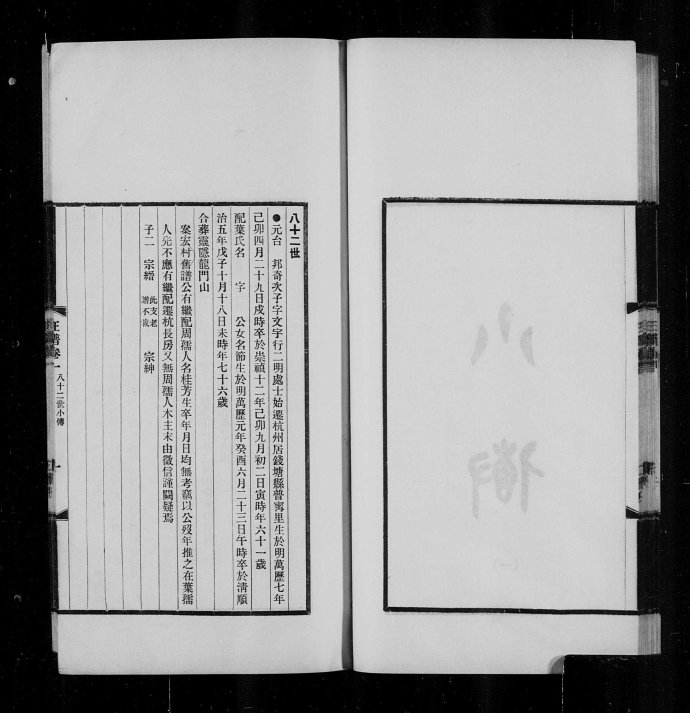 八十二世
●元台 邦奇次子字文宇行二明處士始遷杭州居錢塘縣普寧里生於明萬歷七年
己卯四月二十九日戌時卒於崇禎十二年己卯九月初二日寅時年六十一歲
配葉氏名 字 公女名節生於明萬歷元年癸酉六月二十三日午時卒於清順
治五年戊子十月十八日未時年七十六歲
合葬靈隱龍門山
案宏村舊譜公有繼配周孺人名桂芳生卒年月日均無考竊以公歿年推之在葉孺
人先不應有繼配遷杭長房又無周孺人木主末由徵信謹闕疑焉
子二 宗縉 此支老譜不載 宗紳
汪譜卷一 八十二世小傳
小傳